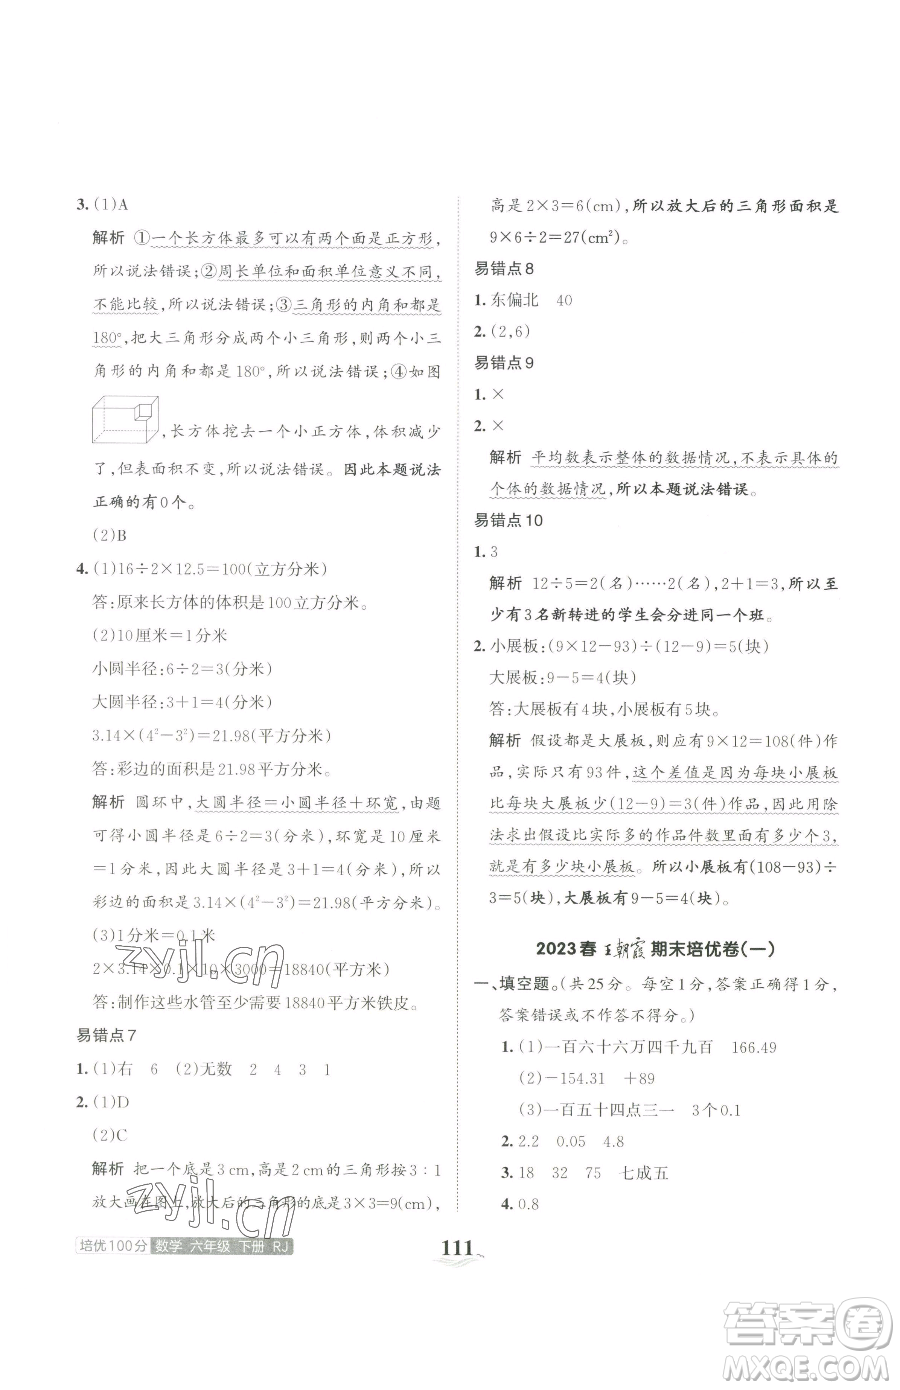 3. (1)A
解析 ①一个长方体最多可以有两个面是正方形,
所以说法错误;②周长单位和面积单位意义不同,
不能比较,所以说法错误;③三角形的内角和都是
180°,把大三角形分成两个小三角形,则两个小三
角形的内角和都是180°,所以说法错误;④如图
,长方体挖去一个小正方体,体积减少
了,但表面积不变,所以说法错误。因此本题说法
正确的有0个。
(2)B
4. (1)16÷2×12.5=100(立方分米)
答:原来长方体的体积是100立方分米。
(2)10厘米=1分米
小圆半径:6÷2=3(分米)
大圆半径:3+1=4(分米)
3.14×(4²-3²)=21.98(平方分米)
答:彩边的面积是21.98平方分米。
解析 圆环中,大圆半径=小圆半径+环宽,由题
可得小圆半径是6÷2=3(分米),环宽是10厘米
=1分米,因此大圆半径是3+1=4(分米),所以
面积是3.14×(4²-3²)=21.98(平方分米)。
(3)1分米=0.1米
2×3.14×0.1×10×3000=18840(平方米)
答:制作这些水管至少需要18840平方米铁皮。
易错点7
1. (1)右 6 (2)无数 2 4 3 1
2. (1)D
(2)C
解析 把一个底是3 cm,高是2 cm的三角形按3:1
放大画在图上,放大后的三角形的底是3×3=9(cm),
高是2×3=6(cm),所以放大后的三角形面积是
9×6÷2=27(cm²)。
易错点8
1. 东偏北 40
2. (2,6)
易错点9
1. ×
2. ×
解析 平均数表示整体的数据情况,不表示具体的
个体的数据情况,所以本题说法错误。
易错点10
1. 3
解析 12÷5=2(名)……2(名),2+1=3,所以至
少有3名新转进的学生会分进同一个班。
2. 小展板:(9×12-93)÷(12-9)=5(块)
大展板:9-5=4(块)
答:大展板有4块,小展板有5块。
解析 假设都是大展板,则应有9×12=108(件)作
品,实际只有93件,这个差值是因为每块小展板
比每块大展板少(12-9)=3(件)作品,因此用除
法求出假设比实际多的作品件数里面有多少个3,
就是有多少块小展板。所以小展板有(108-93)÷
3=5(块),大展板有9-5=4(块)。
2023春 王朝霞 期末培优卷(一)
一、填空题。(共25分。每空1分,答案正确得1分,
答案错误或不作答不得分。)
1. (1)一百六十六万四千九百 166.49
(2)-154.31 +89
(3)一百五十四点三一 3个0.1
2. 2.2 0.05 4.8
3. 18 32 75 七成五
4. 0.8
培优100分 数学 六年级 下册 RJ
111
zyjl.cn
zyjl.cn
答案圈
MXQE.COM